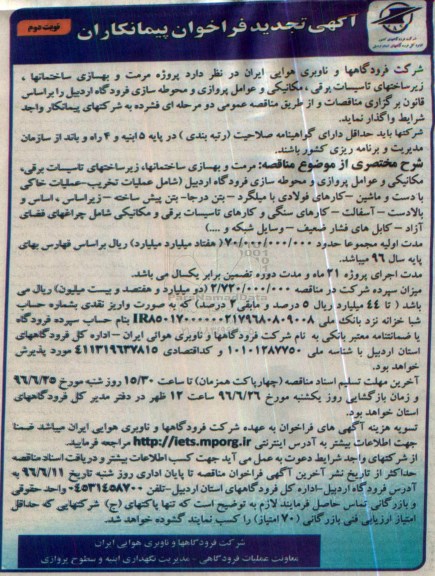 آگهی تجدید فراخوان پیمانکاران
نوبت دوم
شرکت فرودگاهها و ناوبری هوایی ایران در نظر دارد پروژه مرمت و بهسازی ساختمانها ،
زیرساختهای تاسیسات برقی ، مکانیکی و عوامل پروازی و محوطه سازی فرودگاه اردبیل را براساس
قانون برگزاری مناقصات و از طریق مناقصه عمومی دو مرحله ای فشرده به شرکتهای پیمانکار واجد
شرایط واگذار نماید.
شرکتها باید حداقل دارای گواهینامه صلاحیت (رتبه بندی ) در پایه ۵ ابنیه و ۴ راه و باند از سازمان
مدیریت و برنامه ریزی کشور باشند.
شرح مختصری از موضوع مناقصه: مرمت و بهسازی ساختمانها، زیرساختهای تاسیسات برقی،
مکانیکی و عوامل پروازی و محوطه سازی فرودگاه اردبیل (شامل عملیات تخریب-عملیات خاکی
با دست و ماشین -کارهای فولادی با میلگرد - بتن درجا- بتن پیش ساخته - زیراساس ، اساس و
بالادست - آسفالت - کارهای سنگی و کارهای تاسیسات برقی و مکانیکی شامل چراغهای فضای
آزاد - کابل های فشار ضعیف - وسایل شبکه و ....)
مدت اولیه مجموعا حدود ۷۰/۰۰۰/۰۰۰/۰۰۰( هفتاد میلیارد میلیارد) ریال براساس فهارس بهای
پایه سال ۹۶ میباشد.
مدت اجرای پروژه ۲۱ ماه و مدت دوره تضمین برابر یکسال می باشد.
میزان سپرده شرکت در مناقصه ۲/۷۲۰/۰۰۰/۰۰۰ (دو میلیارد و هفتصد و بیست میلیون) ریال می
باشد ( تا ۴۴ میلیارد ریال ۵ درصد و مابقی ۲ درصد) که به صورت واریز نقدی بشماره حساب
شبا خزانه نزد بانک ملی IR۸۵۰۱۷۰۰۰۰۰۰۰۲۱۷۹۶۸۰۸۰۹۰۰۸ بنام حساب سپرده فرودگاه
یا ضمانتنامه معتبر بانکی به نام شرکت فرودگاهها و ناوبری هوائی ایران -اداره کل فرودگاههای
استان اردبیل با شناسه ملی ۱۰۱۰۱۲۸۷۷۵۰ و کداقتصادی ۴۱۱۳۱۹۶۳۷۸۱۵ مورد پذیرش
خواهد بود.
آخرین مهلت تسلیم اسناد مناقصه (چهارپاکت همزمان) تا ساعت ۱۵/۳۰ روز شنبه مورخ ۹۶/۶/۲۵
و زمان بازگشایی روز یکشنبه مورخ ۹۶/۶/۲۶ ساعت ۱۲ ظهر در دفتر مدیر کل فرودگاههای
استان خواهد بود.
تسویه هزینه آگهی های فراخوان به عهده شرکت فرودگاهها و ناوبری هوایی ایران میباشد ضمنا
جهت اطلاعات بیشتر به آدرس اینترنتی http://iets.mporg.ir مراجعه فرمایید.
از شرکتهای واجد شرایط دعوت به عمل می آید جهت کسب اطلاعات بیشتر و دریافت اسناد مناقصه
حداکثر از تاریخ نشر آخرین آگهی فراخوان مناقصه تا پایان اداری روز شنبه تاریخ ۹۶/۶/۱۱ به
آدرس فرودگاه اردبیل-اداره کل فرودگاههای استان اردبیل-تلفن ۰۴۵۳۱۴۵۸۷۰۰ واحد حقوقی
و بازرگانی تماس حاصل فرمایند لازم به توضیح است که تنها پاکتهای (ج) شرکتهایی که حداقل
امتیاز ارزیابی فنی بازرگانی (۷۰ امتیاز) را کسب نمایند گشوده خواهد شد.
شرکت فرودگاهها و ناوبری هوایی ایران
معاونت عملیات فرودگاهی - مدیریت نگهداری ابنیه و سطوح پروازی